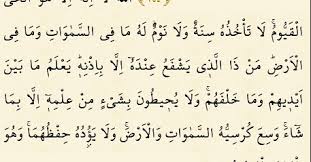 اَلْقَيُّومُۚ لَا تَأْخُذُهُ سِنَةٌ وَلَا نَوْمٌۜ لَهُ مَا فِي السَّمٰوَاتِ وَمَا فِي
الْاَرْضِۜ مَنْ ذَا الَّذ۪ي يَشْفَعُ عِنْدَهُٓ اِلَّا بِاِذْنِه۪ۜ يَعْلَمُ مَا بَيْنَ
اَيْد۪يهِمْ وَمَا خَلْفَهُمْۚ وَلَا يُح۪يطُونَ بِشَيْءٍ مِنْ عِلْمِه۪ٓ اِلَّا بِمَا
شَٓاءَۚ وَسِعَ كُرْسِيُّهُ السَّمٰوَاتِ وَالْاَرْضَۚ وَلَا يَؤُ۫دُهُ حِفْظُهُمَاۚ وَهُوَ